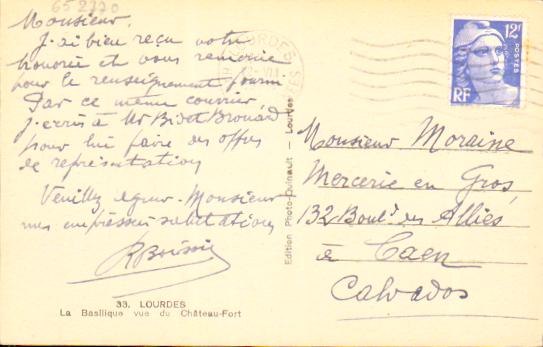 652770
Monsieur,
J'ai bien reçu votre
honorée et vous remercie
pour le renseignement fourni
Par ce même courrier,
j'écris à Mr Bidet Brouard
pour lui faire des offres
de représentation
Veuillez agréer, Monsieur
mes empressées salutations
33. LOURDES
La Basilique vue du Château-Fort
Edition Photo-Quinault - Lourdes
LOURDES
12F
POSTES
RF
Monsieur Moraine
Mercerie en Gros,
132 Boul.d des Alliés
à Caen
Calvados